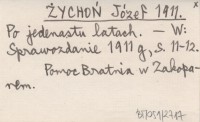 ŻYCHOŃ Józef 1911.
x
Po jedenastu latach. — W:
Sprawozdanie 1911 g, s. 11-12.
Pomoc Bratnia w Zakopa-
nem.